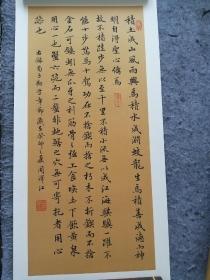 積土成山風雨興焉積水成淵蛟龍生焉積善成德而神
明自得聖心備焉
故不積跬步無以至千里不積小流無以成江海騏驥一躍不
能十步駑馬十駕功在不捨鍥而捨之朽木不折鍥而不捨
金石可鏤蚓無爪牙之利筋骨之強上食埃土下飲黃泉
用心一也蟹六跪而二螯非蛇鱔之穴無可寄托者用心
躁也 右錄荀子勸學章節歲在癸卯之夏周澤江